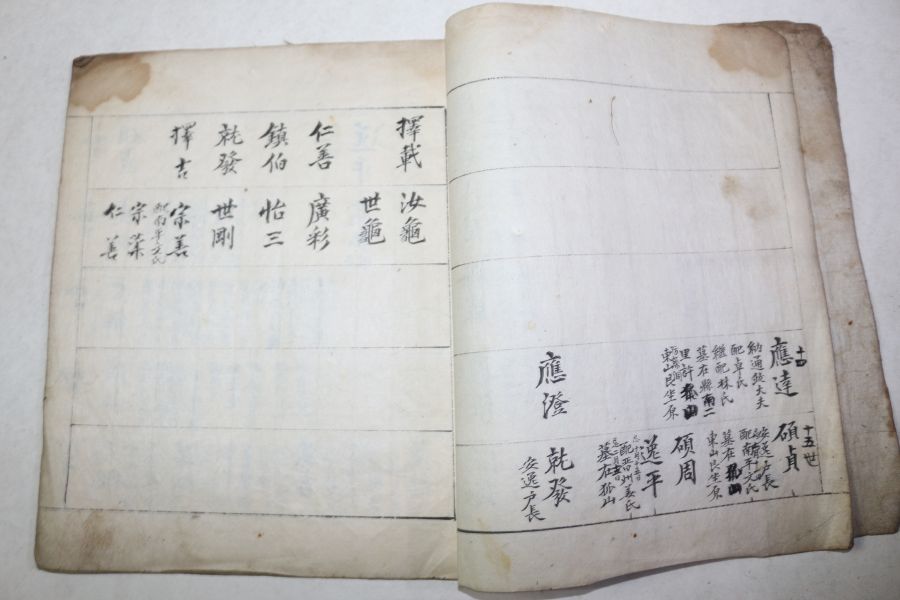 應達
納通政大夫
配卓氏
繼配林氏
墓在縣南二
里許狐山
東山艮坐原
應澄
十五世
碩貞
安逸戶長
配南平文氏
墓在狐山
東山艮坐原
碩周
逸平
配晋州姜氏
墓在狐山
就發
安逸戶長
擇載
仁善
鎮伯
就發
擇吉
汝龜
世龜
廣彩
怡三
世剛
宗善
配南平文氏
宗業
仁善